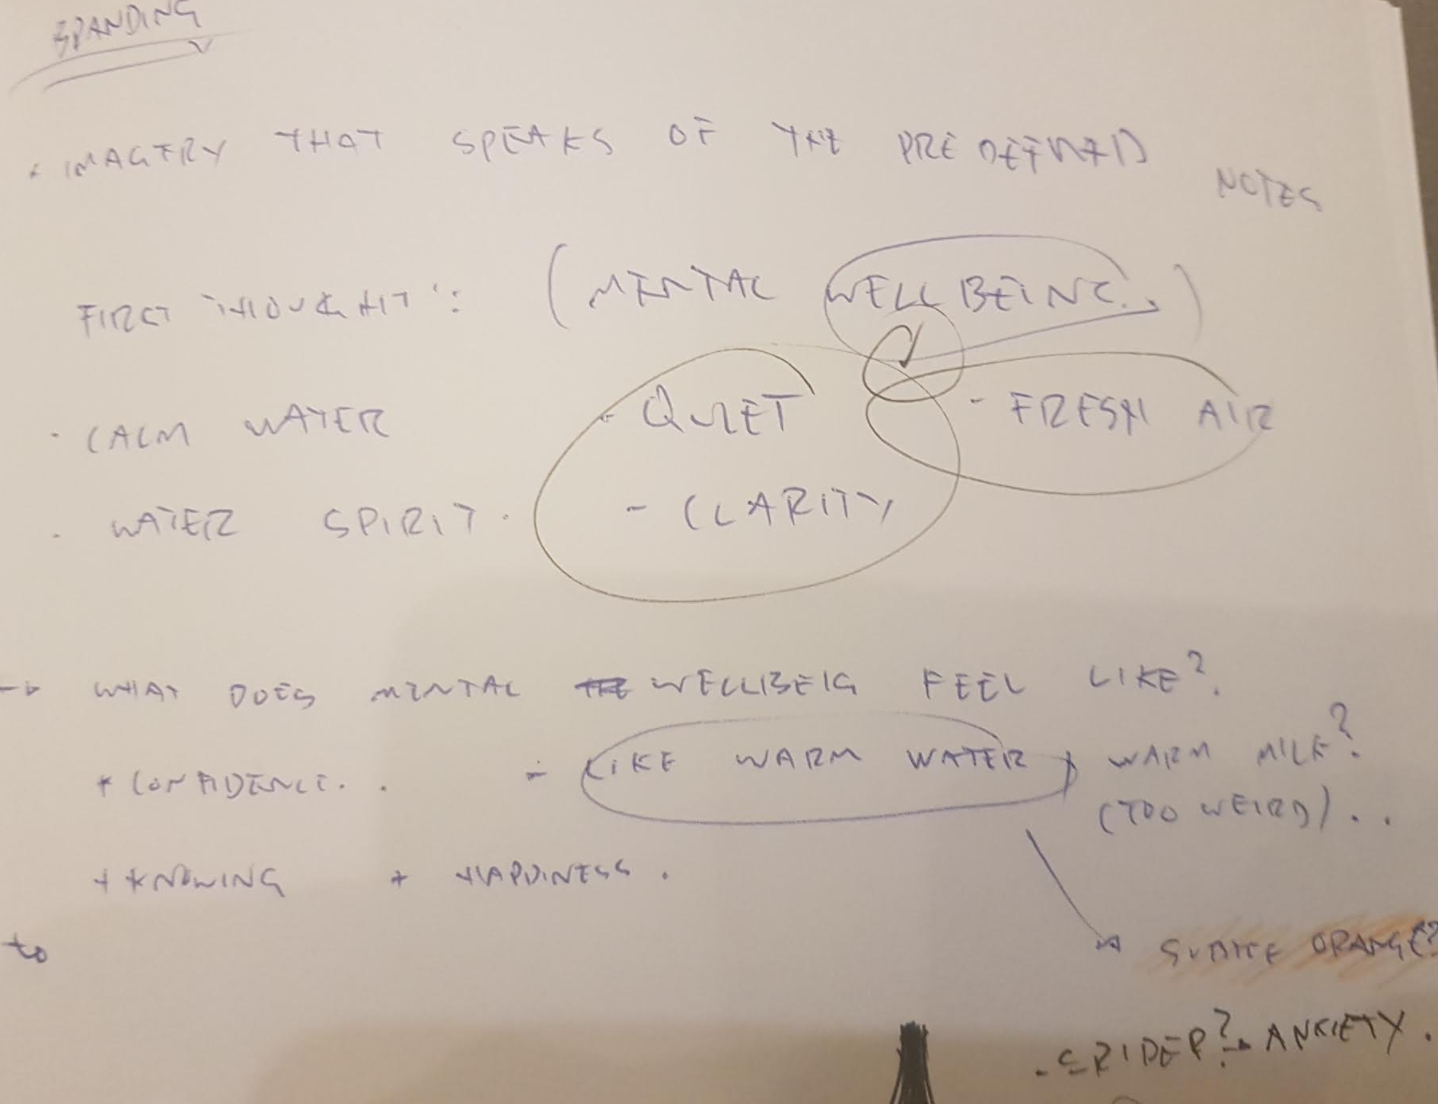 BRANDING
• IMAGERY THAT SPEAKS OF THE PREDEFINED NOTES
FIRST THOUGHT': (MENTAL WELLBEING..)
• CALM WATER - QUIET - FRESH AIR
• WATER SPIRIT. - CLARITY
→ WHAT DOES MENTAL WELLBEIG FEEL LIKE?
+ CONFIDENCE.. - LIKE WARM WATER, WARM MILK?
(TOO WEIRD)..
+ KNOWING + HAPPINESS.
to
→ SUBTLE ORANGE?
- SPIDER? → ANXIETY.